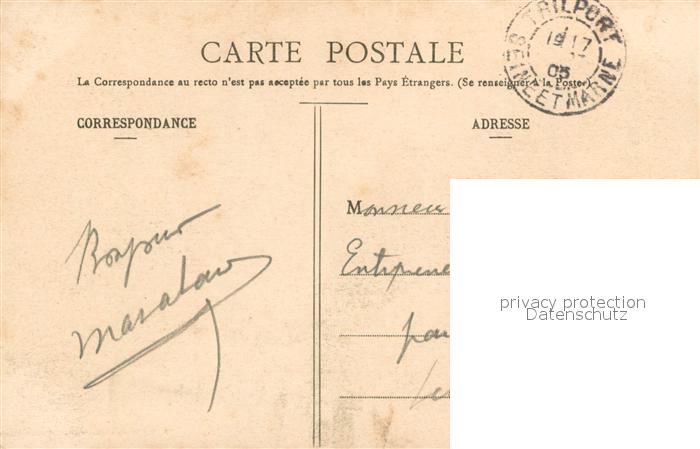 TRILPORT
17
05
SEINE ET MARNE
CARTE POSTALE
La Correspondance au recto n'est pas acceptée par tous les Pays Étrangers. (Se renseigner à la Poste)
CORRESPONDANCE
ADRESSE
Bonjour
Monsieur
Entreprene
par
privacy protection
Datenschutz